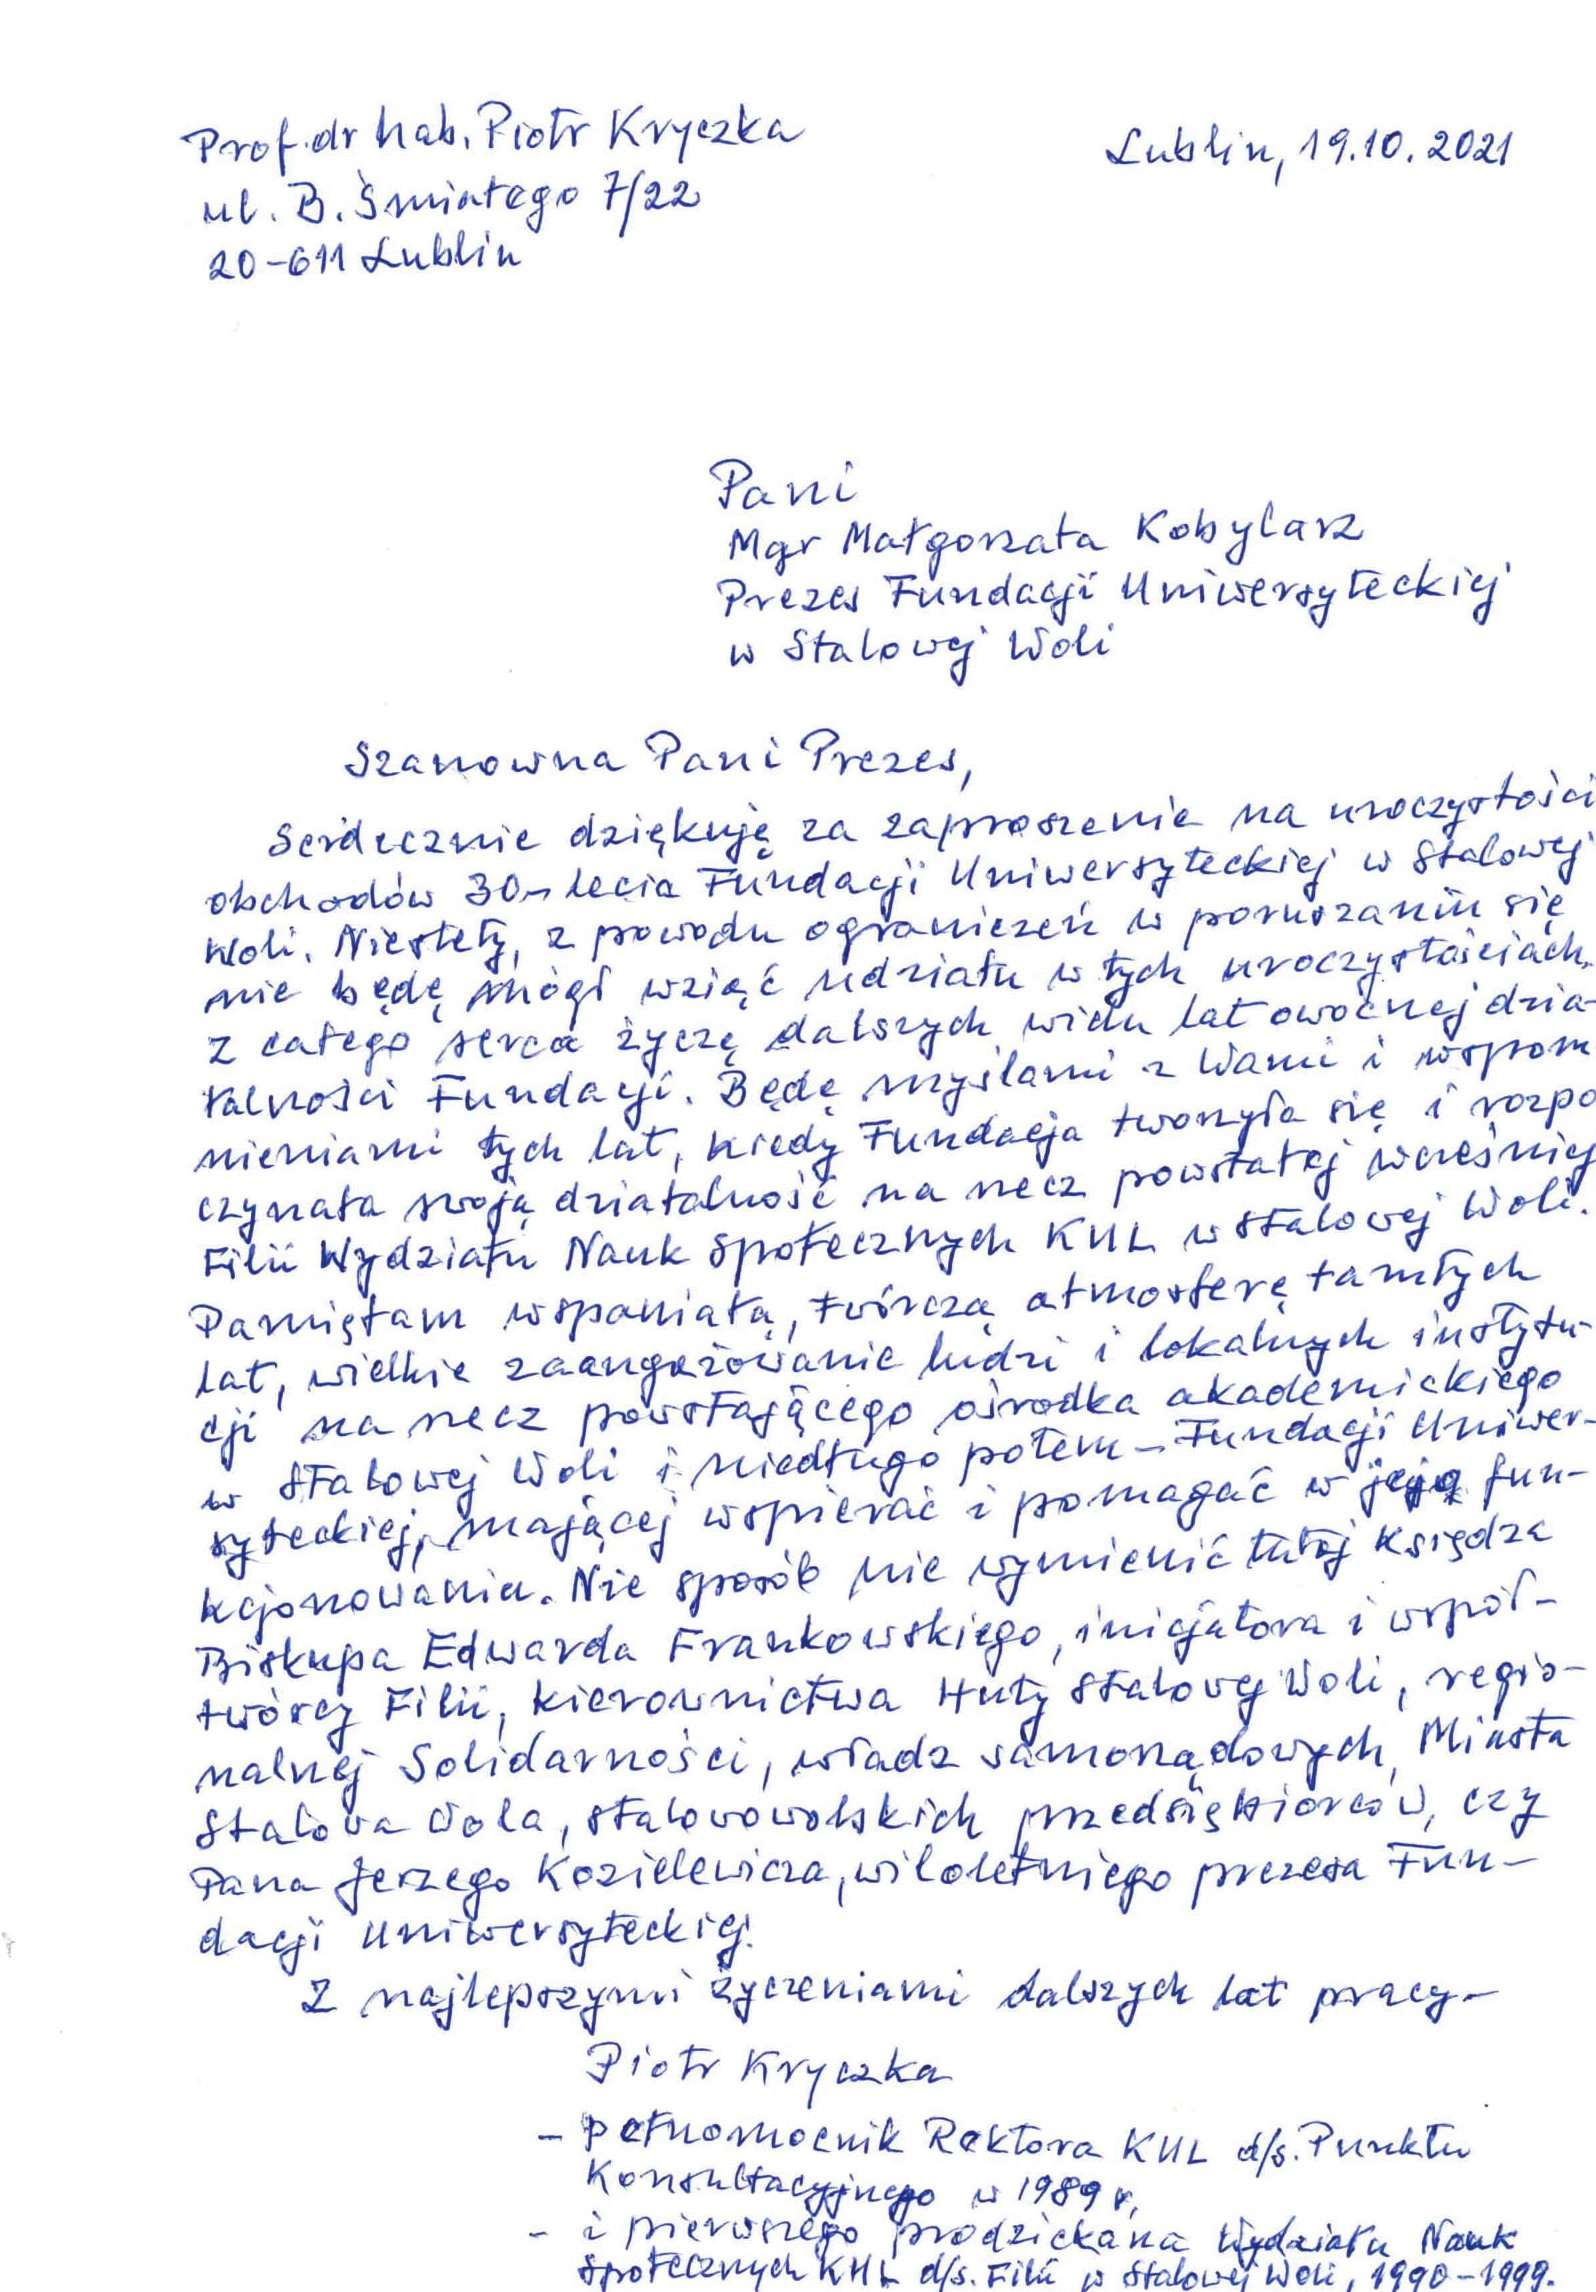 Prof. dr hab. Piotr Kryczka
Lublin, 19.10.2021
ul. B. Śmiałego 7/22
20-611 Lublin
Pani
Mgr Małgorzata Kobylarz
Prezes Fundacji Uniwersyteckiej
w Stalowej Woli
Szanowna Pani Prezes,
Serdecznie dziękuję za zaproszenie na uroczystości
obchodów 30-lecia Fundacji Uniwersyteckiej w Stalowej
Woli. Niestety, z powodu ograniczeń w poruszaniu się
nie będę mógł wziąć udziału w tych uroczystościach.
Z całego serca życzę dalszych wielu lat owocnej dzia-
łalności Fundacji. Będę myślami z Wami i wspom
nieniami tych lat, kiedy Fundacja tworzyła się i rozpo
czynała swoją działalność na rzecz powstałej wcześniej
Filii Wydziału Nauk Społecznych KUL w Stalowej Woli.
Pamiętam wspaniałą, twórczą atmosferę tamtych
lat, wielkie zaangażowanie ludzi i lokalnych instytu-
cji na rzecz powstającego ośrodka akademickiego
w Stalowej Woli i niedługo potem – Fundacji Uniwer-
syteckiej, mającej wspierać i pomagać w jego fun-
kcjonowaniu. Nie sposób nie wymienić tutaj Księdza
Biskupa Edwarda Frankowskiego, inicjatora i współ-
twórcy Filii, kierownictwa Huty Stalowej Woli, regio-
nalnej Solidarności, władz samorządowych, Miasta
Stalowa Wola, stalowowolskich przedsiębiorców, czy
Pana Jerzego Kozielewicza, wiloletniego prezesa Fun-
dacji Uniwersyteckiej.
Z najlepszymi życzeniami dalszych lat pracy –
Piotr Kryczka
– pełnomocnik Rektora KUL d/s. Punktu
Konsultacyjnego w 1989 r,
- i pierwszego prodziekana Wydziału Nauk
Społecznych KUL d/s. Filii w Stalowej Woli, 1990-1999.